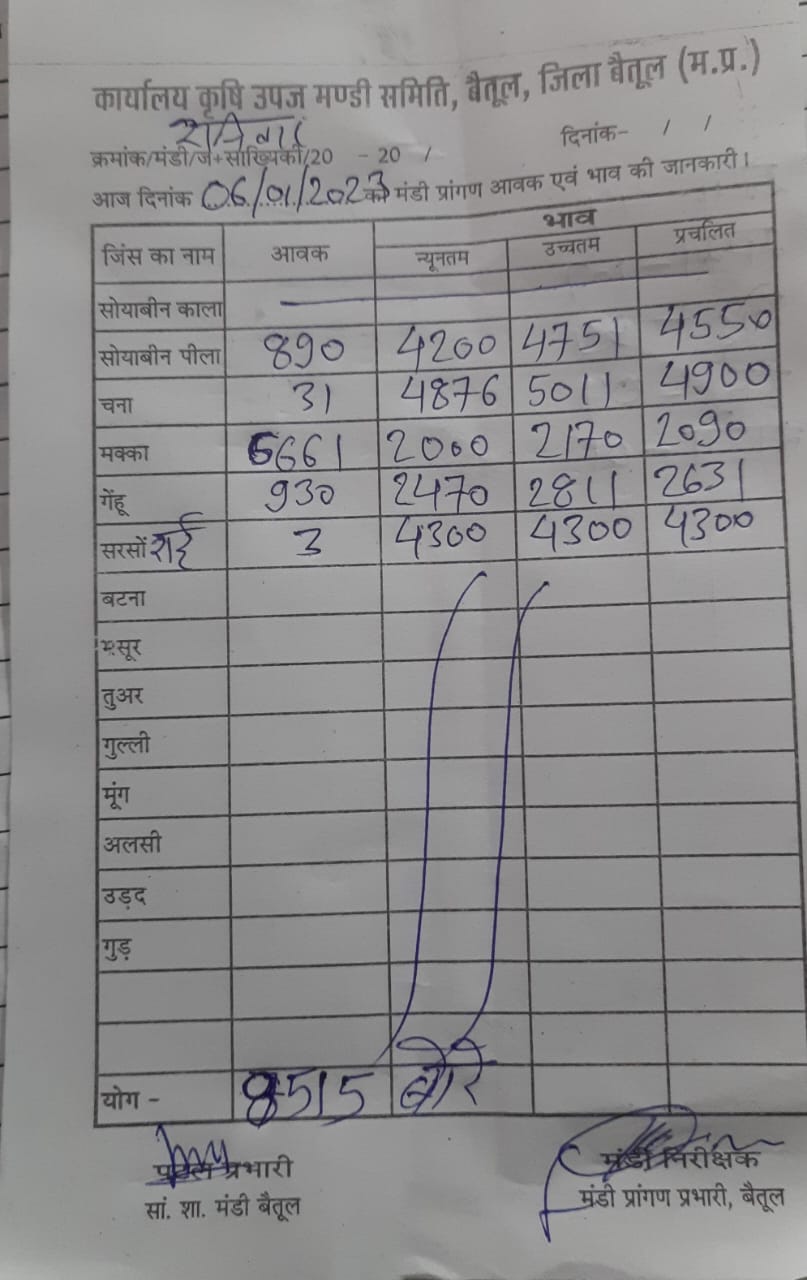 कार्यालय कृषि उपज मण्डी समिति, बैतूल, जिला बैतूल (म.प्र.)
शनिवार
क्रमांक/मंडी/ज+सांख्यिकी/20 - 20 / दिनांक- / /
आज दिनांक 06/01/2023 को मंडी प्रांगण आवक एवं भाव की जानकारी।
जिंस का नाम आवक भाव
न्यूनतम उच्चतम प्रचलित
सोयाबीन काला —
सोयाबीन पीला 890 4200 4751 4550
चना 31 4876 5011 4900
मक्का 6661 2000 2170 2090
गेंहू 930 2470 2811 2631
सरसों राई 3 4300 4300 4300
बटना
मसूर
तुअर
गुल्ली
मूंग
अलसी
उड़द
गुड़
योग - 8515 बोरे
प्रभारी मंडी निरीक्षक
सां. शा. मंडी बैतूल मंडी प्रांगण प्रभारी, बैतूल